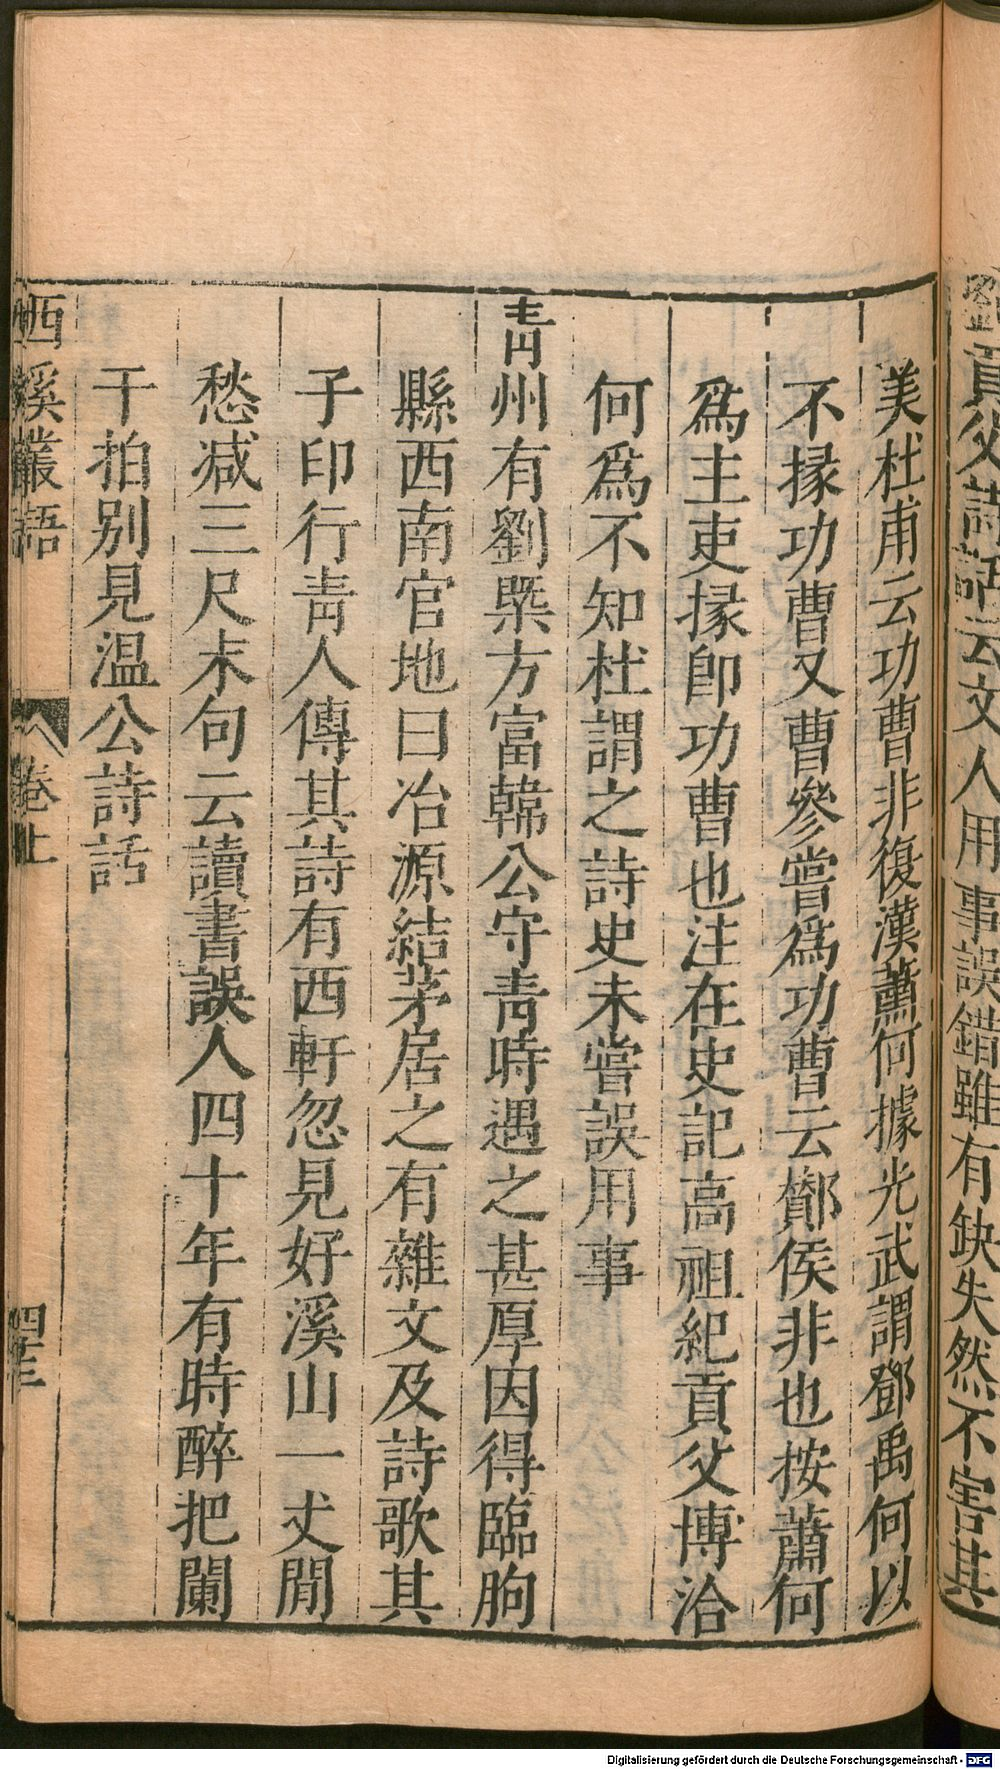 劉貢父詩話云文人用事誤錯雖有缺失然不害其
美杜甫云功曹非復漢蕭何據光武謂鄧禹何以
不掾功曹又曹參嘗爲功曹云酇侯非也按蕭何
爲主吏掾卽功曹也注在史記高祖紀貢父博洽
何爲不知杜謂之詩史未嘗誤用事
青州有劉槩方富韓公守青時遇之甚厚因得臨朐
縣西南官地曰冶源結茅居之有雜文及詩歌其
子印行青人傳其詩有西軒忽見好溪山一丈閒
愁减三尺末句云讀書誤人四十年有時醉把闌
干拍别見温公詩話
西溪叢語 卷上 四十三
Digitalisierung gefördert durch die Deutsche Forschungsgemeinschaft - DFG